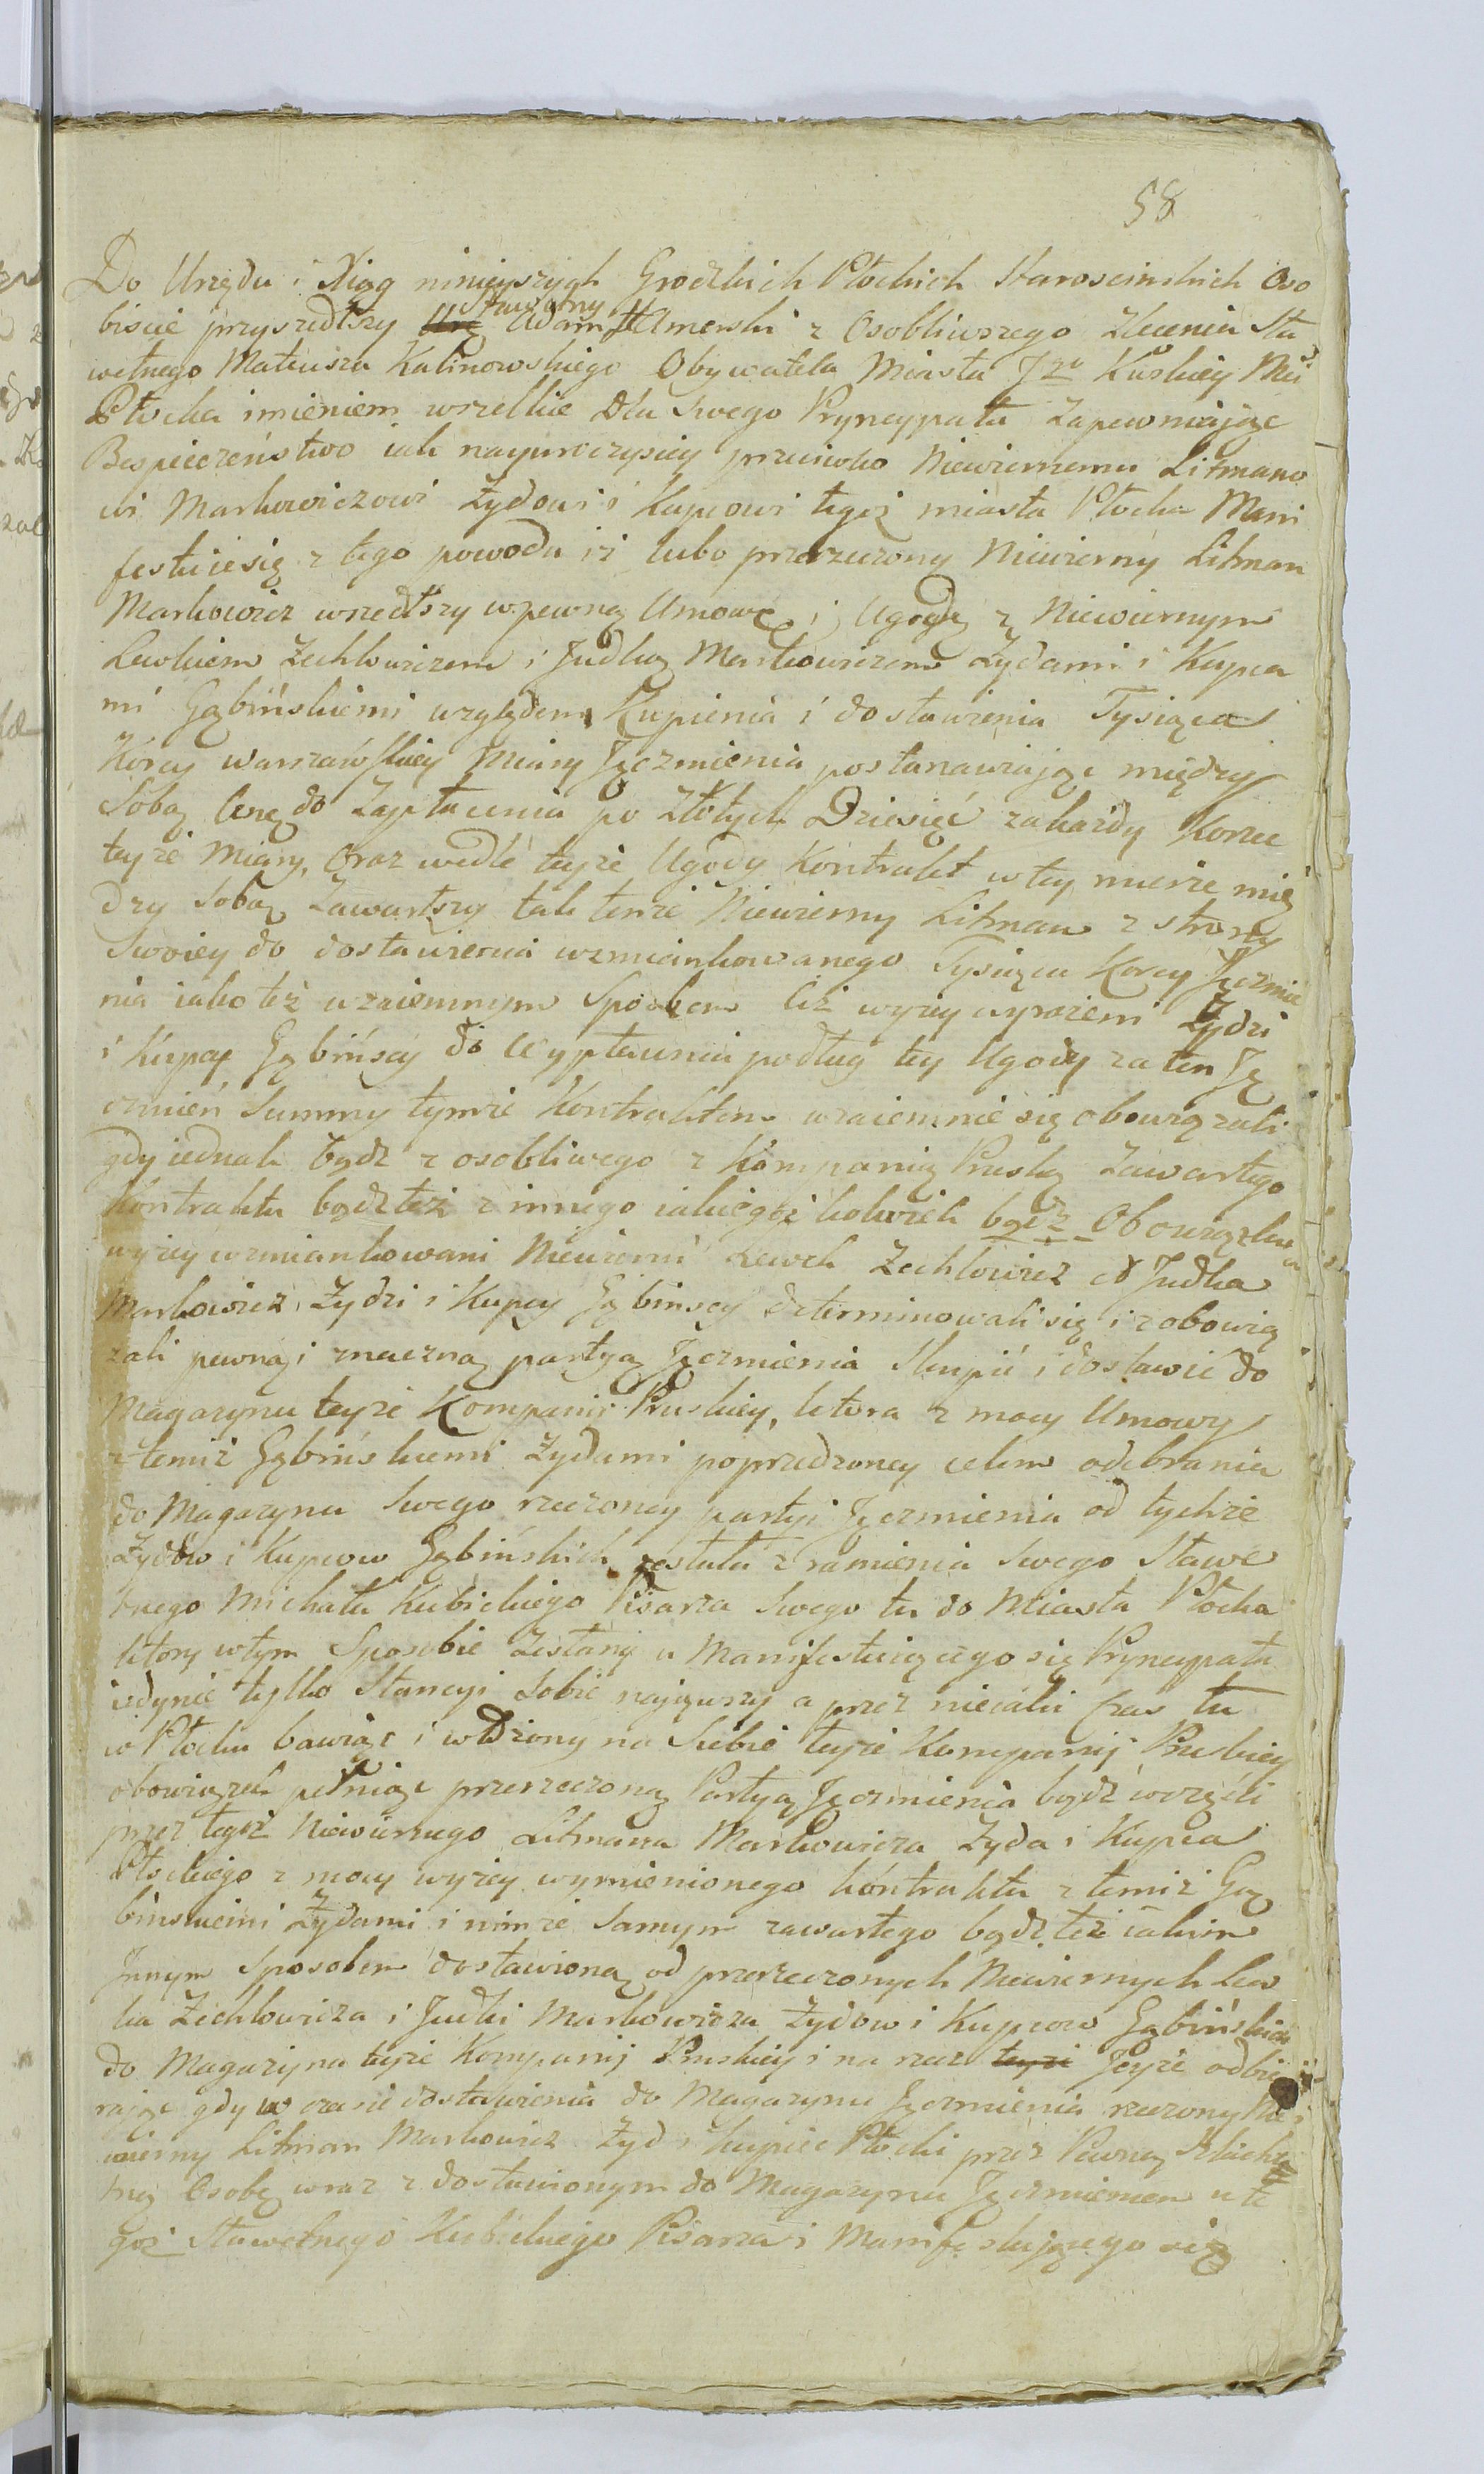 58
Do Urzędu i Xiąg ninieyszych Grodzkich Płockich Starościnskich Oso
biscie przyszedłszy Ur Sławetny Adam z Osobliwszego Zlecenia Sła
wetnego Mateusza Kalinowskiego Obywatela Miasta Mci
Płocka imieniem wszelkie dla Swego Pryncypała Zapewniaiąc
Bespieczeństwo iak nayuroczysciey przeciwko Niewiernemu Litmano
wi Markowiczowi Żydowi i Kupcowi tegoż miasta Płocka Mani
festuie się z tego powodu iż lubo przerzeczony Niewierny Litman
Markowicz wszedłszy w pewną Umowę i Ugodę z Niewiernym
Lewkiem Zechlowiczem i Judką Markowiczem Żydami i Kupca
mi Gąbińskiemi względem Kupienia i dostawienia Tysiąca
Korcy warszawskiey Miary Jęczmienia postanawiając między
Sobą Cenę do Zapłacenia po Złotych Dziesięć za każdy Korzec
teyże Miary, Oraz wedle teyże Ugody Kontrakt w tey mierze mię
dzy Sobą Zawarłszy tak tenże Niewierny Litman z strony
Swoiey do dostawienia wzmiankowanego Tysiąca Korcy Jęczmie
nia iako też wzaiemnym Sposobem Ciż wyżey wyrażeni Żydzi
i Kupcy Gąbińscy do Wypłacenia podług tey Ugody za ten Ję
czmień Summy tymże Kontraktem wzaiemnie się obowiązali
gdy iednak bądz z osobliwego z Kompanią Pruską Zawartego
Kontraktu bądz też z innego iakiegoż kolwiek bądź Obowiązku
wyżey wzmiankowani Niewierni Lewek Zechlowicz et Judka
Markowicz, Żydzi i Kupcy Gąbinscy determinowali się i zobowią
zali pewną i znaczną partyą Jęczmienia Skupić i dostawić do
Magazynu teyże Kompanii Pruskiey, ktora z mocy Umowy
z temiż Gąbińskiemi Żydami poprzedzoney celem odebrania
do Magazynu Swego rzeczoney partyi Jęczmienia od tychże
Żydow i Kupcow Gąbińskich zesłała z ramienia Swego Sławe
tnego Michała Kubickiego Pisarza Swego tu do Miasta Płocka
ktory w tym Sposobie Zesłany u Manifestuiącego się Pryncypała
iedynie tylko Stancyi Sobie naiąwszy a przez nieiaki Czas tu
w Płocku bawiąc i włożony na Siebie teyże Kompanij Pruskiey
obowiązek pełniąc przerzeczoną Partyą Jęczmienia bądź w części
przez tegoż Niewiernego Litmana Markowicza Żyda i Kupca
Płockiego z mocy wyżey wymienionego kontraktu z temiż Gą
bińskiemi Żydami i nimże Samym zawartego bądz też iakim
Innym Sposobem dostawioną od przerzeczonych Niewiernych Lew
ka Zechlowicza i Judki Markowicza Żydow i Kupcow Gąbińskich
do Magazynu teyże Kompanij Pruskiey i na rzecz teyże Jeyże odbie
raiąc gdy w czasie dostawienia do Magazynu Jęczmienia rzeczony Nie
wierny Litman Markowicz Żyd i kupiec Płocki przez Pewną Szlache
tną Osobę wraz z dostawionym do Magazynu Jęczmieniem u te
goż Sławetnego Kubickiego Pisarza i Manifestuiącego się